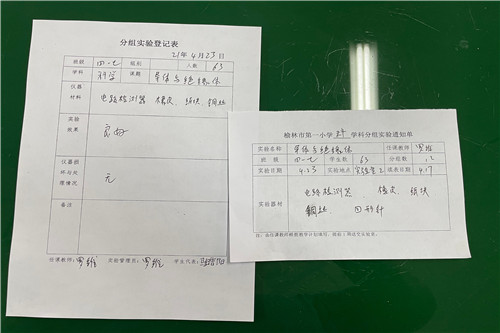 分组实验登记表
21年4月23日
班级 四一七 组别 人数 63
学科 科学 课题 导体与绝缘体
仪器材料 电路检测器、橡皮、铁块、铜丝
实验效果 良好
仪器损坏与处理情况 无
备注
任课教师: 罗维 实验管理员: 罗维 学生代表:
榆林市第一小学 科学 学科分组实验通知单
实验名称 导体与绝缘体 任课教师 罗维
班级 四一七 学生数 63 分组数 12
实验日期 4.23 实验地点 实验室2 填表日期 4.17
实验器材 电路检测器、橡皮、铁块
铜丝、回形针